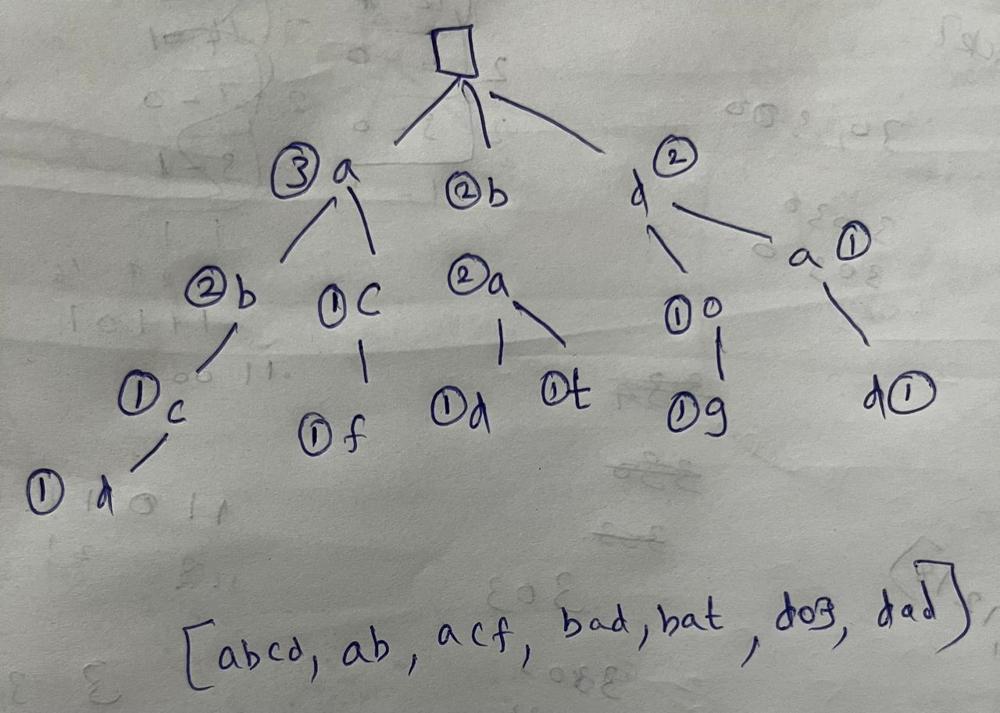 ③ a ②b d ②
②b ①c ②a ①o a ①
①c ①f ①d ①t ①g d①
① d
[abcd, ab, acf, bad, bat, dog, dad]